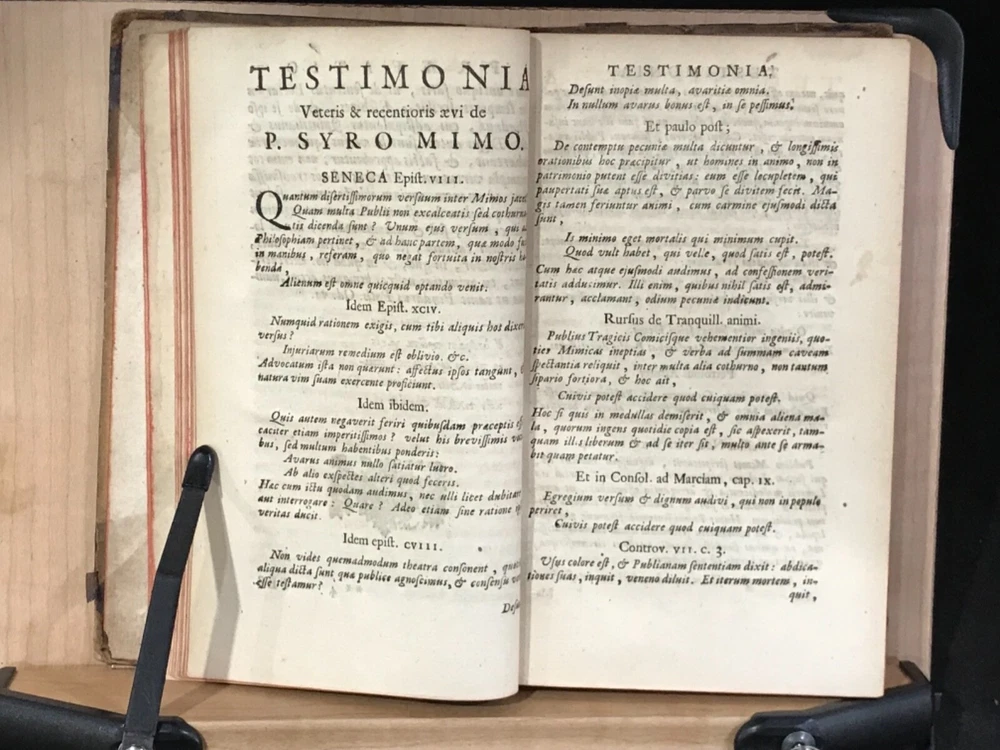 TESTIMONIA
Veteris & recentioris ævi de
P. SYRO MIMO.
SENECA Epist. VIII.
Quantum disertissimorum versuum inter Mimos
Quam multa Publii non excalceatis sed
tis dicenda sunt? Unum ejus versum, qui
Philosophiam pertinet, & ad hanc partem, quæ modo
in manibus, referam, quo negat fortuita in nostris
benda,
Alienum est omne quicquid optando venit.
Idem Epist. XCIV.
Numquid rationem exigis, cum tibi aliquis hos
versus?
Injuriarum remedium est oblivio. &c.
Advocatum ista non quærunt: affectus ipsos tangunt,
natura vim suam exercente proficiunt.
Idem ibidem.
Quis autem negaverit feriri quibusdam præceptis
caciter etiam imperitissimos? velut his brevissimis
bus, sed multum habentibus ponderis:
Avarus animus nullo satiatur lucro.
Ab alio exspectes alteri quod feceris.
Hæc cum ictu quodam audimus, nec ulli licet
aut interrogare: Quare? Adeo etiam sine ratione
veritas ducit.
Idem epist. CVIII.
Non vides quemadmodum theatra consonent,
aliqua dicta sunt quæ publice agnoscimus, & consensu
esse testamur?
TESTIMONIA.
Desunt inopiæ multa, avaritiæ omnia.
In nullum avarus bonus est, in se pessimus.
Et paulo post;
De contemptu pecuniæ multa dicuntur, & longissimis
orationibus hoc præcipitur, ut homines in animo, non in
patrimonio putent esse divitias: eum esse locupletem, qui
paupertati suæ aptus est, & parvo se divitem fecit. Ma-
gis tamen feriuntur animi, cum carmine ejusmodi dicta
sunt,
Is minimo eget mortalis qui minimum cupit.
Quod vult habet, qui velle, quod satis est, potest.
Cum hæc atque ejusmodi audimus, ad confessionem veri-
tatis adducimur. Illi enim, quibus nihil satis est, admi-
rantur, acclamant, odium pecuniæ indicunt.
Rursus de Tranquill. animi.
Publius Tragicis Comicisque vehementior ingeniis, quo-
ties Mimicas ineptias, & verba ad summam caveam
spectantia reliquit, inter multa alia cothurno, non tantum
sipario fortiora, & hoc ait,
Cuivis potest accidere quod cuiquam potest.
Hoc si quis in medullas demiserit, & omnia aliena ma-
la, quorum ingens quotidie copia est, sic aspexerit, tam-
quam illis liberum & ad se iter sit, multo ante se arma-
bit quam petatur.
Et in Consol. ad Marciam, cap. IX.
Egregium versum & dignum audivi, qui non in populo
periret,
Cuivis potest accidere quod cuiquam potest.
Controv. VII. c. 3.
Usus colore est, & Publianam sententiam dixit: abdica-
tiones suas, inquit, veneno diluit. Et iterum mortem, in-
quit,